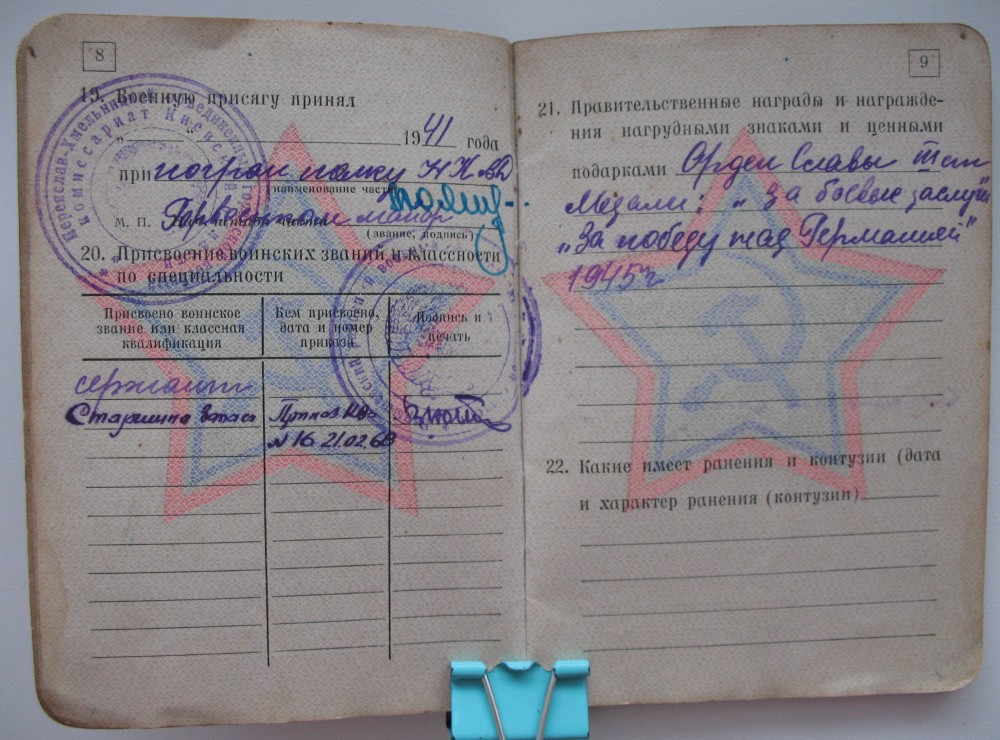 8
19. Военную присягу принял
" " 1941 года
при погран полку НКВД
наименование части
М. П. майор
(звание, подпись)
20. Присвоение воинских званий и классности
по специальности
Присвоено воинское звание или классная квалификация
Кем присвоено, дата и номер приказа
Подпись и печать
сержант
Старшина запаса Приказ
№ 16 21.02.60
Переяслав-Хмельницкий
комиссариат Киевской
9
21. Правительственные награды и награжде-
ния нагрудными знаками и ценными
подарками Орден Славы IIIст
Медали: „За боевые заслуги
„За победу над Германией"
1945г
22. Какие имеет ранения и контузии (дата
и характер ранения (контузии)